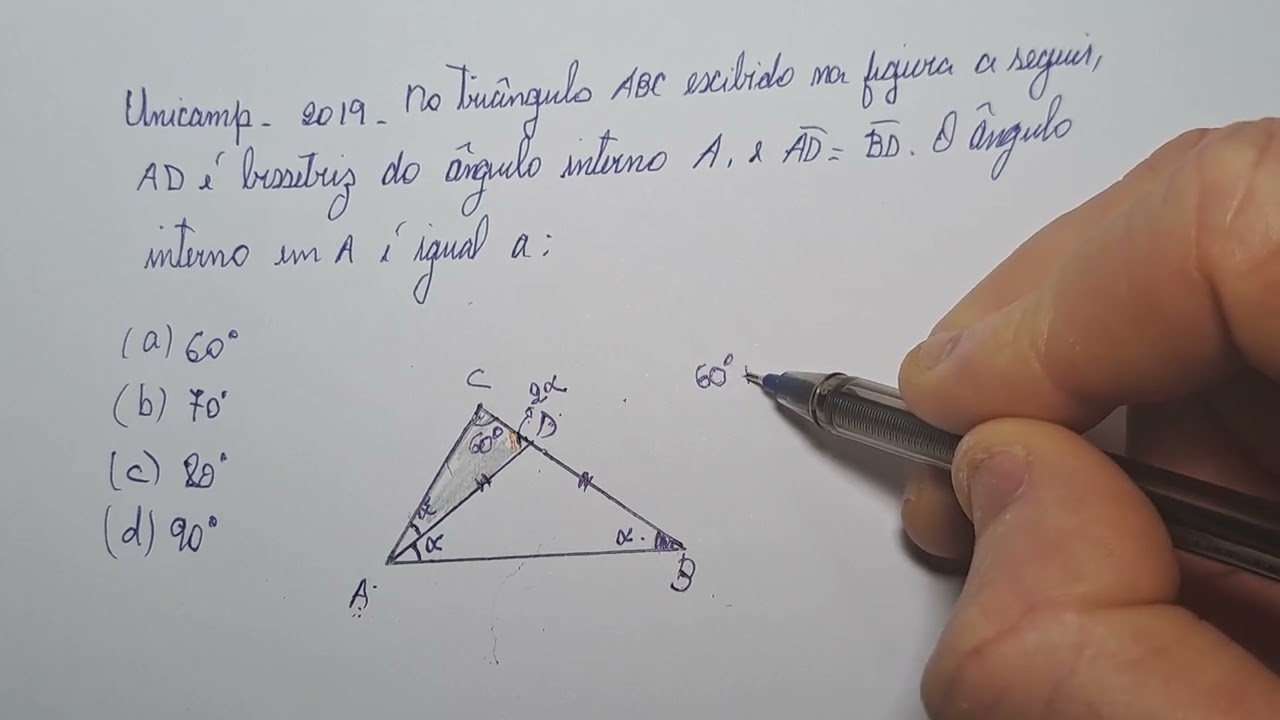 Unicamp - 2019 - No Triângulo ABC exibido na figura a seguir,
AD é bissetriz do ângulo interno A, e AD = BD. O ângulo
interno em A é igual a:
(a) 60°
(b) 70°
(c) 80°
(d) 90°
60° +
C
2α
D
60°
α
α
α
A
B